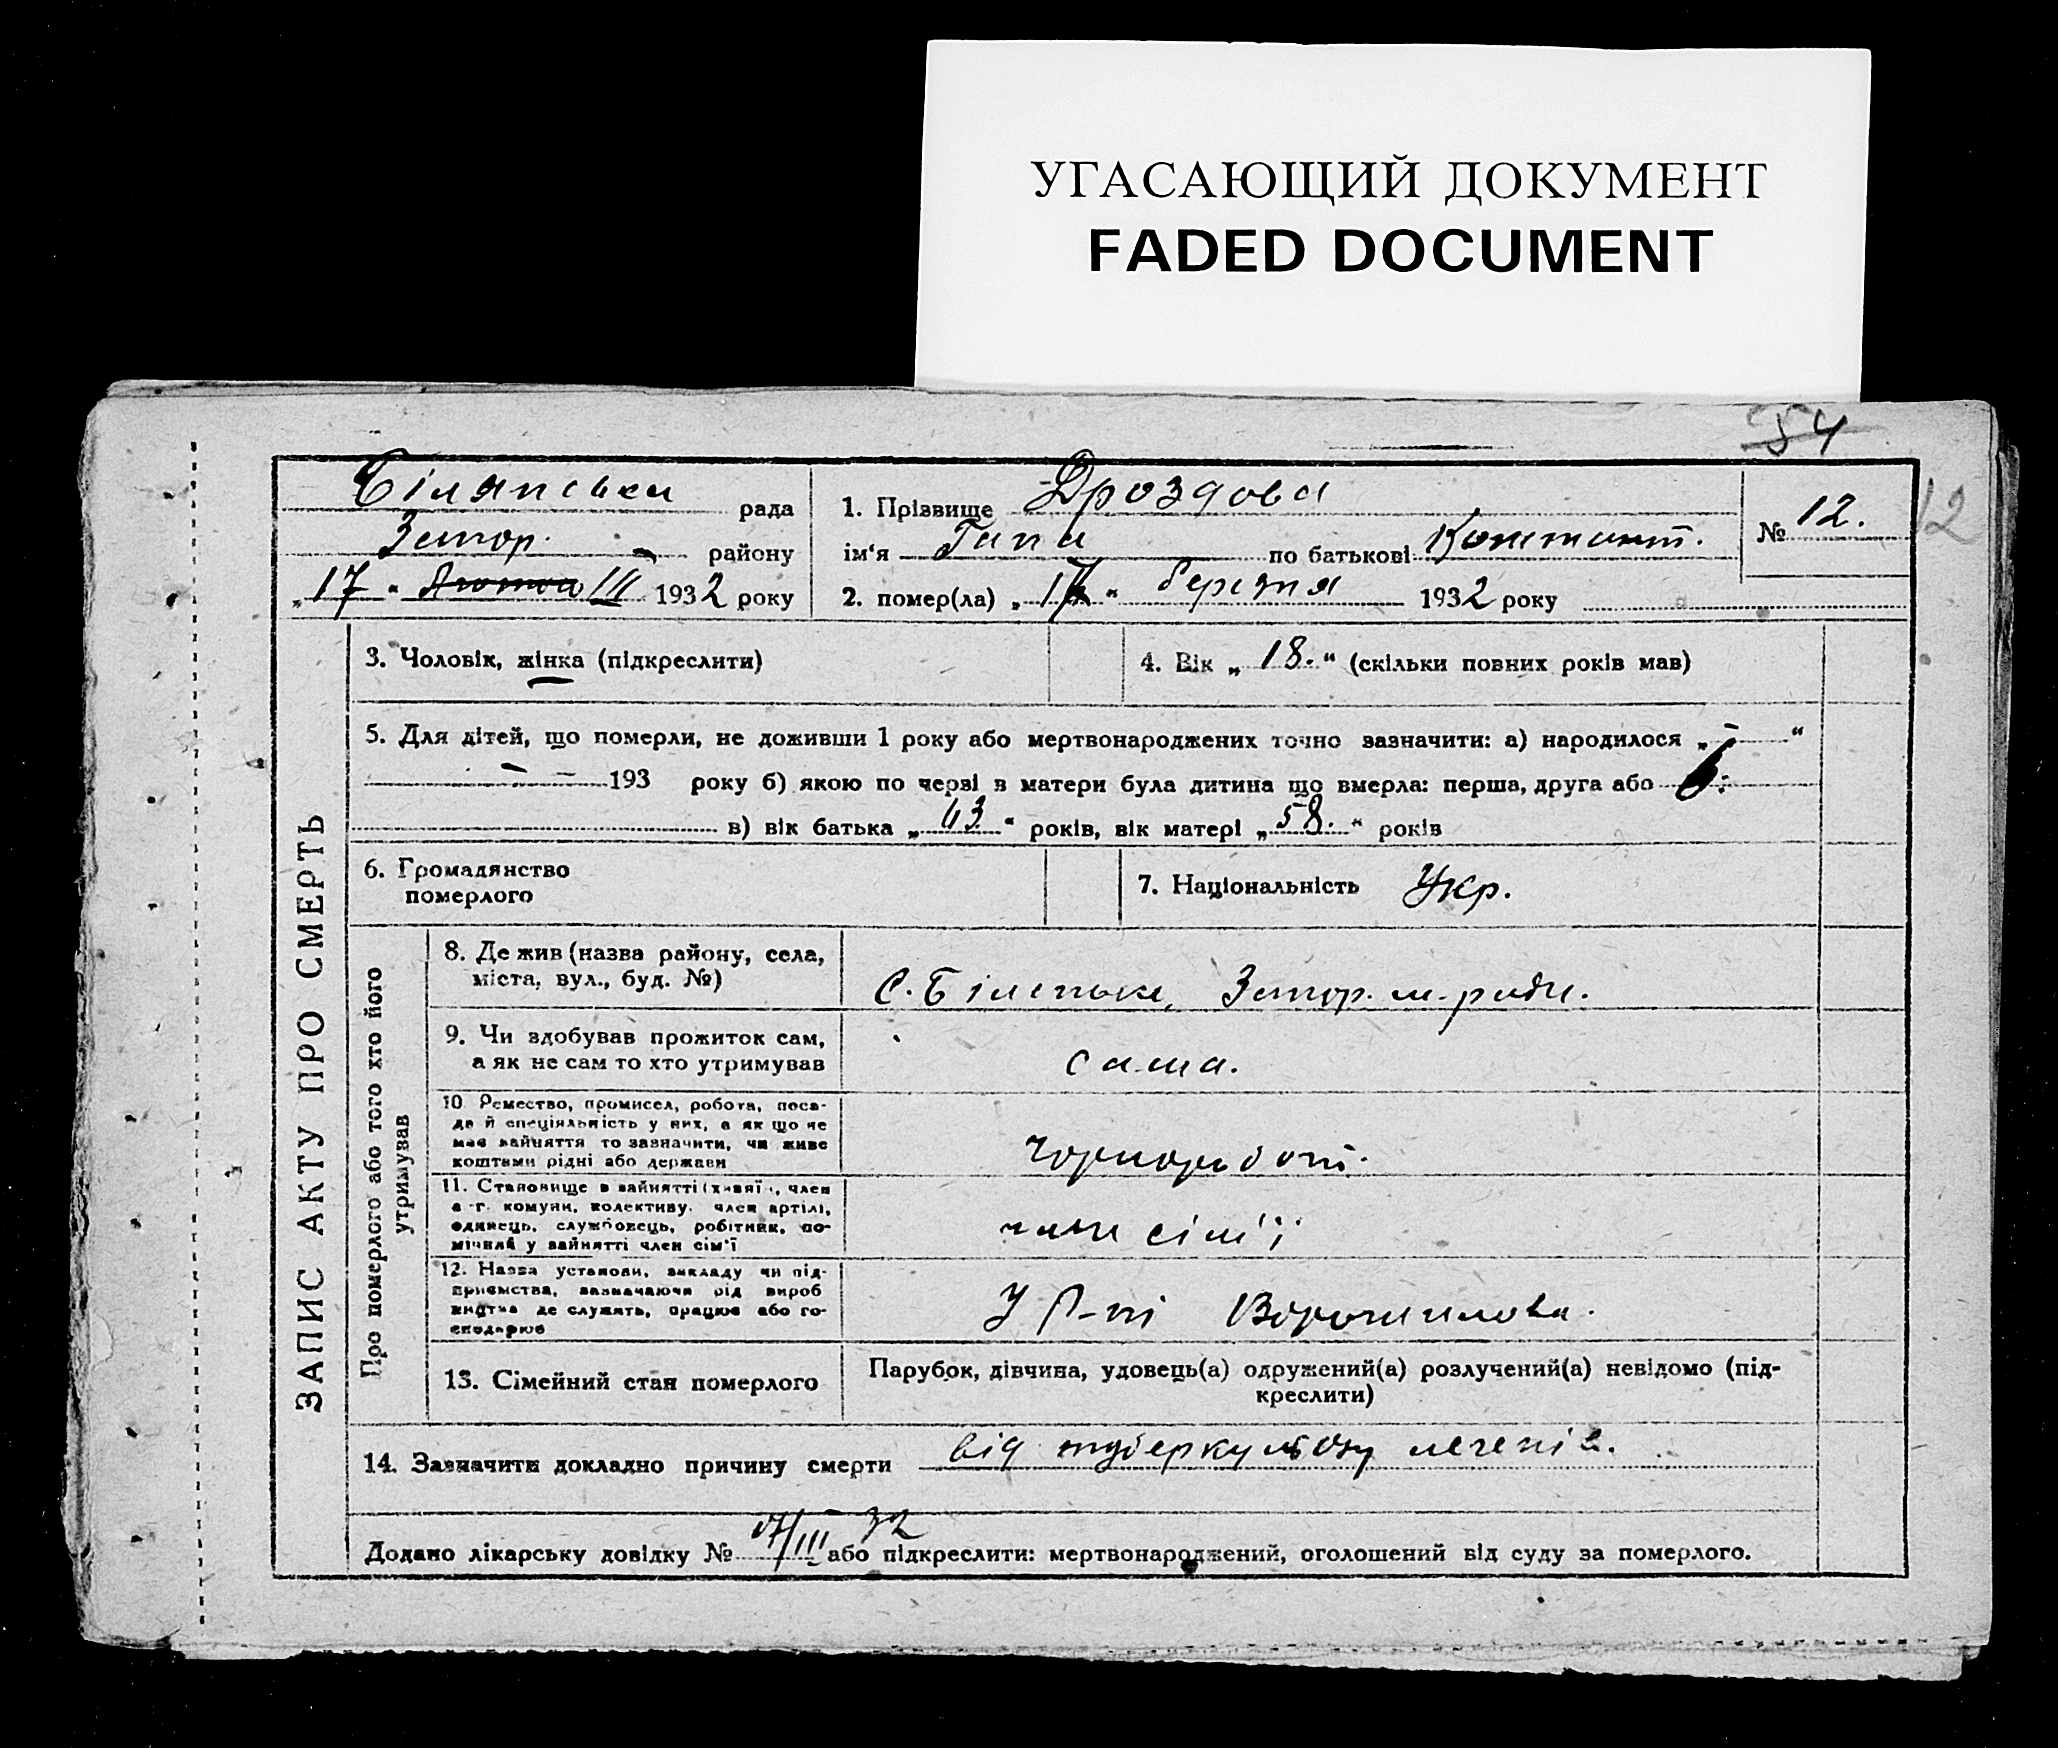 УГАСАЮЩИЙ ДОКУМЕНТ
FADED DOCUMENT
54
Білянська рада
Запор. району
„17“ III 1932 року
1. Прізвище Дроздова
ім‘я Гапа по батькові Констант.
2. помер(ла) „17“ березня 1932 року
№ 12.
12
ЗАПИС АКТУ ПРО СМЕРТЬ
3. Чоловік, жінка (підкреслити)
4. Вік „18.“ (скільки повних років мав)
5. Для дітей, що померли, не доживши 1 року або мертвонароджених точно зазначити: а) народилося „-“
— — 193 року б) якою по черві в матери була дитина що вмерла: перша, друга або 6.
в) вік батька „63“ років, вік матері „58.“ років
6. Громадянство
померлого
7. Національність Укр.
Про померлого або того хто його
утримував
8. Де жив (назва району, села,
міста, вул., буд. №)
С. Біленьке, Запор. м-ради.
9. Чи здобував прожиток сам,
а як не сам то хто утримував
сама.
10 Ремество, промисел, робота, поса-
да й спеціяльність у них, а як що не
має зайняття то зазначити, чи живе
коштами рідні або держави
чорнороботі.
11. Становище в зайнятті (хазяї., член
с-г. комуни, колективу. член артілі,
одинець, службовець, робітник, по-
мічний у зайнятті член сім‘ї
член сім'ї
12. Назва установи, закладу чи під-
приємства, зазначаючи рід вироб
ництва де служить, працює або го-
сподарює
У Р-пі Ворошилова.
13. Сімейний стан померлого
Парубок, дівчина, удовець(а) одружений(а) розлучений(а) невідомо (під-
креслити)
14. Зазначити докладно причину смерти від туберкульозу легенів.
Додано лікарську довідку № 17/III 32 або підкреслити: мертвонароджений, оголошений від суду за померлого.